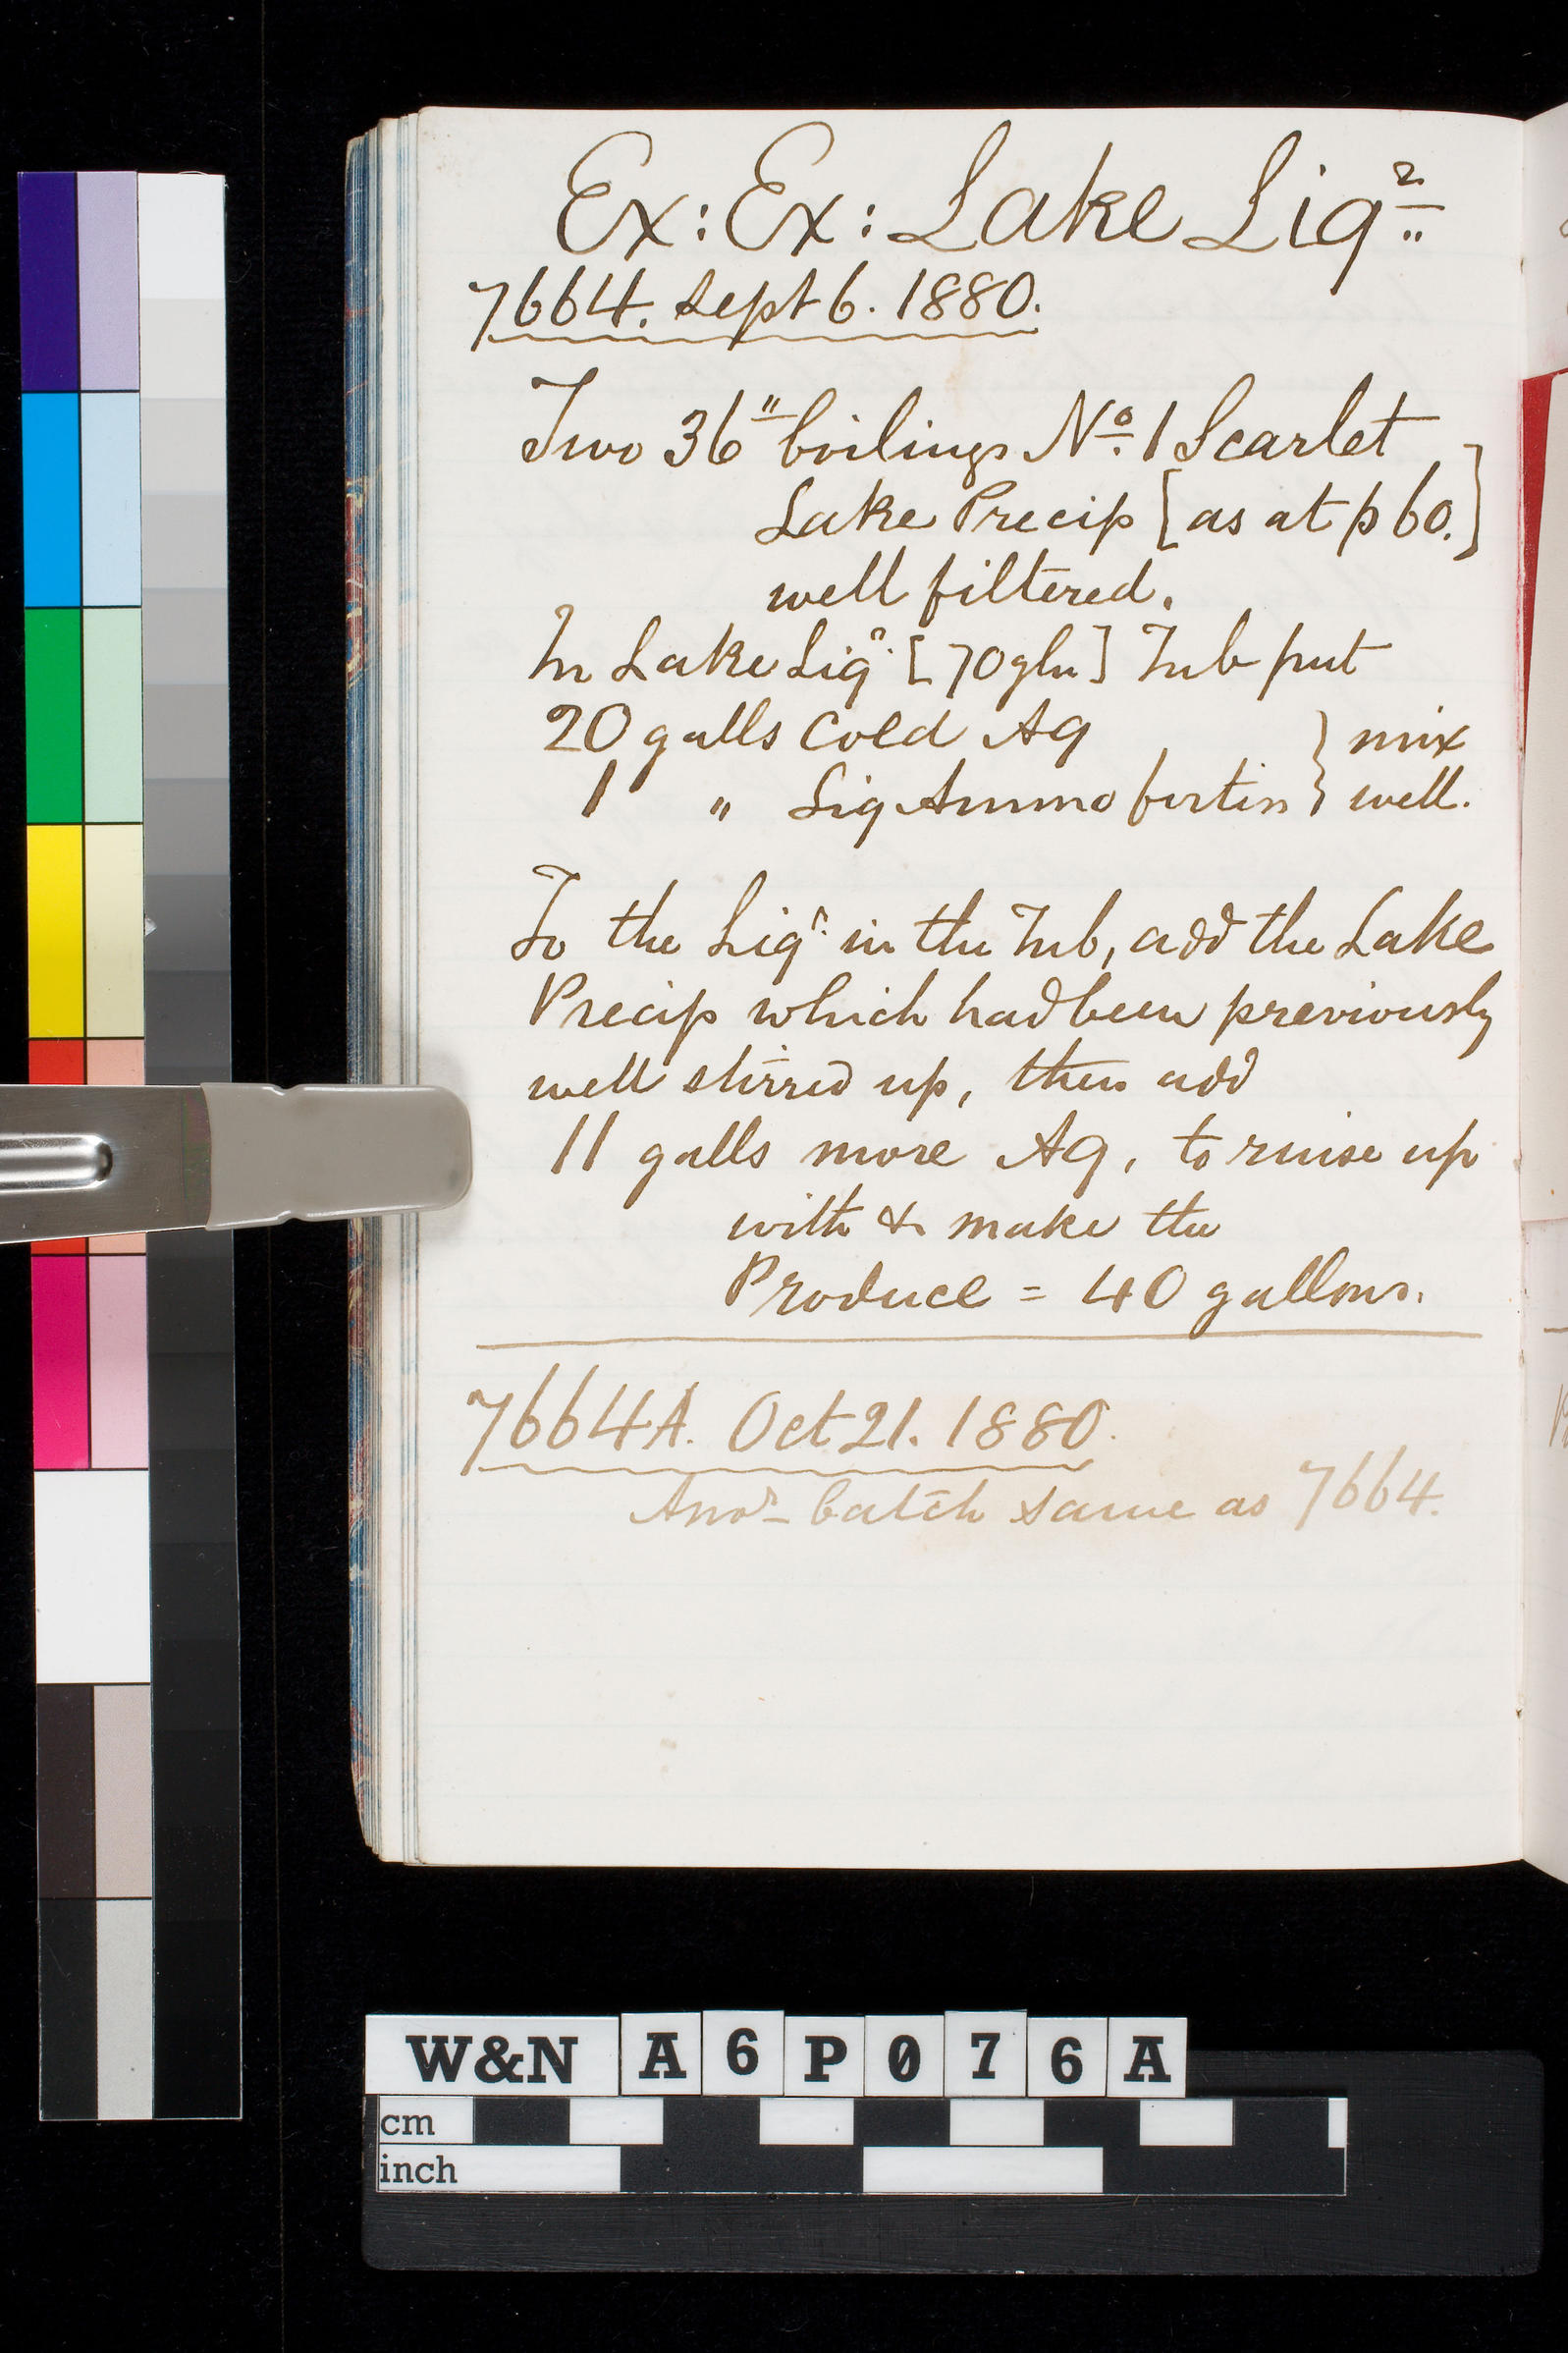 Ex: Ex: Lake Liqr
7664. Sept 6. 1880.
Two 36" boilings No. 1 Scarlet
Lake Precip [as at p 60.]
well filtered.
In Lake Liqr. [70 glln] Tub put
20 galls Cold Aq } mix
1 " Liq Ammo fortis } well.
To the Liqr. in the Tub, add the Lake
Precip which had been previously
well stirred up, then add
11 galls more Aq, to rinse up
with & make the
Produce = 40 gallons.
7664A. Oct 21. 1880.
Anor batch same as 7664.
W&N A6P076A
cm
inch